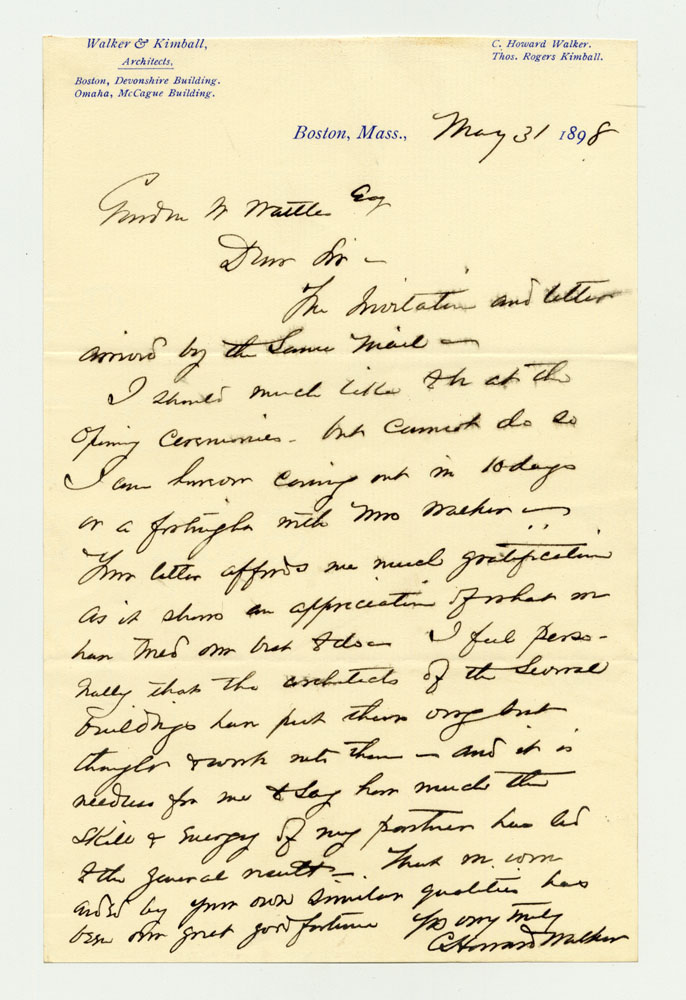 Walker & Kimball,
Architects.
Boston, Devonshire Building.
Omaha, McCague Building.
C. Howard Walker.
Thos. Rogers Kimball.
Boston, Mass., May 31 1898
Gurdon W Wattles Esq
Dear Sir –
The Invitation and letter
arrived by the same mail –
I should much like to be at the
opening ceremonies – but cannot do so
I am however coming out in 10 days
or a fortnight with Mrs Walker –
Your letter affords me much gratification
as it shows an appreciation of what we
have tried our best to do – I feel perso-
nally that the architects of the several
buildings have put their very best
thought & work into them – and it is
needless for me to say how much the
skill & energy of my partner has led
to the general result –. That we were
aided by your own similar qualities has
been our great good fortune
Yrs very truly
C Howard Walker